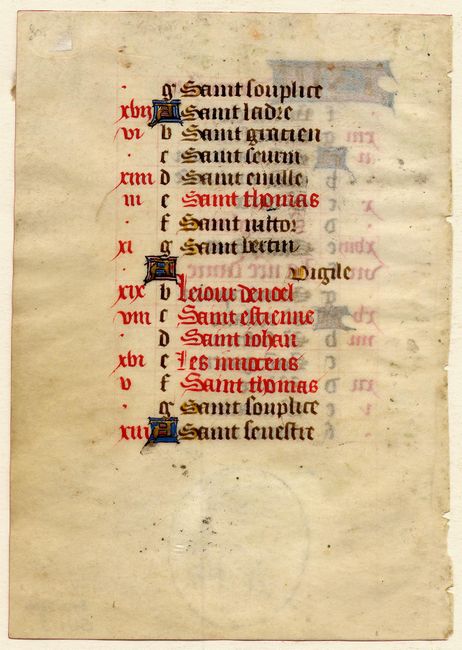 g Saint souplice
xvii A Saint ladre
vi b Saint gracien
c Saint seurin
xiiii d Saint
iii e Saint thomas
f Saint victor
xi g Saint bertin
A Vigile
xix b Le iour de noel
viii c Saint estienne
d Saint iohan
xvi e Les innocens
v f Saint thomas
g Saint souplice
xiii A Saint seuestre